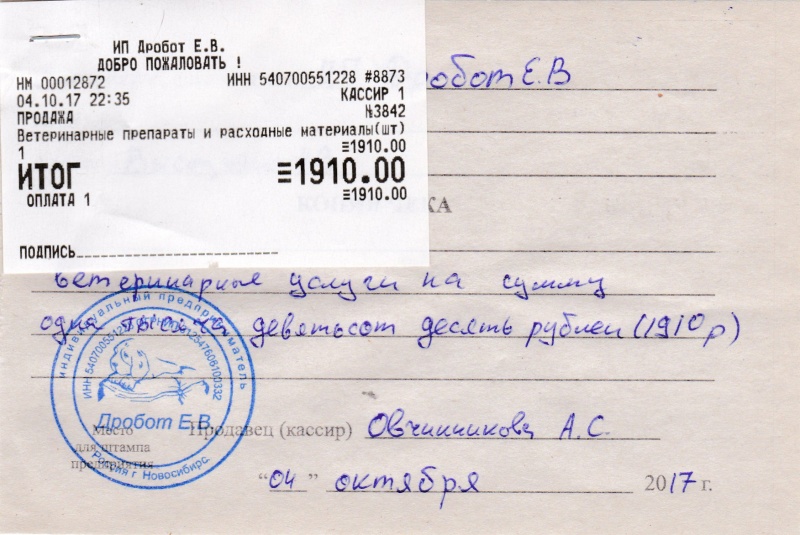 ИП Дробот Е.В.
ДОБРО ПОЖАЛОВАТЬ !
НМ 00012872 ИНН 540700551228 #8873
04.10.17 22:35 КАССИР 1
ПРОДАЖА №3842
Ветеринарные препараты и расходные материалы(шт)
1 ≡1910.00
ИТОГ ≡1910.00
ОПЛАТА 1 ≡1910.00
ПОДПИСЬ
Дробот Е.В
ветеринарные услуги на сумму
одна тысяча девятьсот десять рублей (1910р)
индивидуальный предприниматель
ИНН 540700551228
Дробот Е.В.
Россия г. Новосибирс.
Место
для штампа
предприятия
Продавец (кассир) Овчинникова А.С.
“04” октября 2017 г.